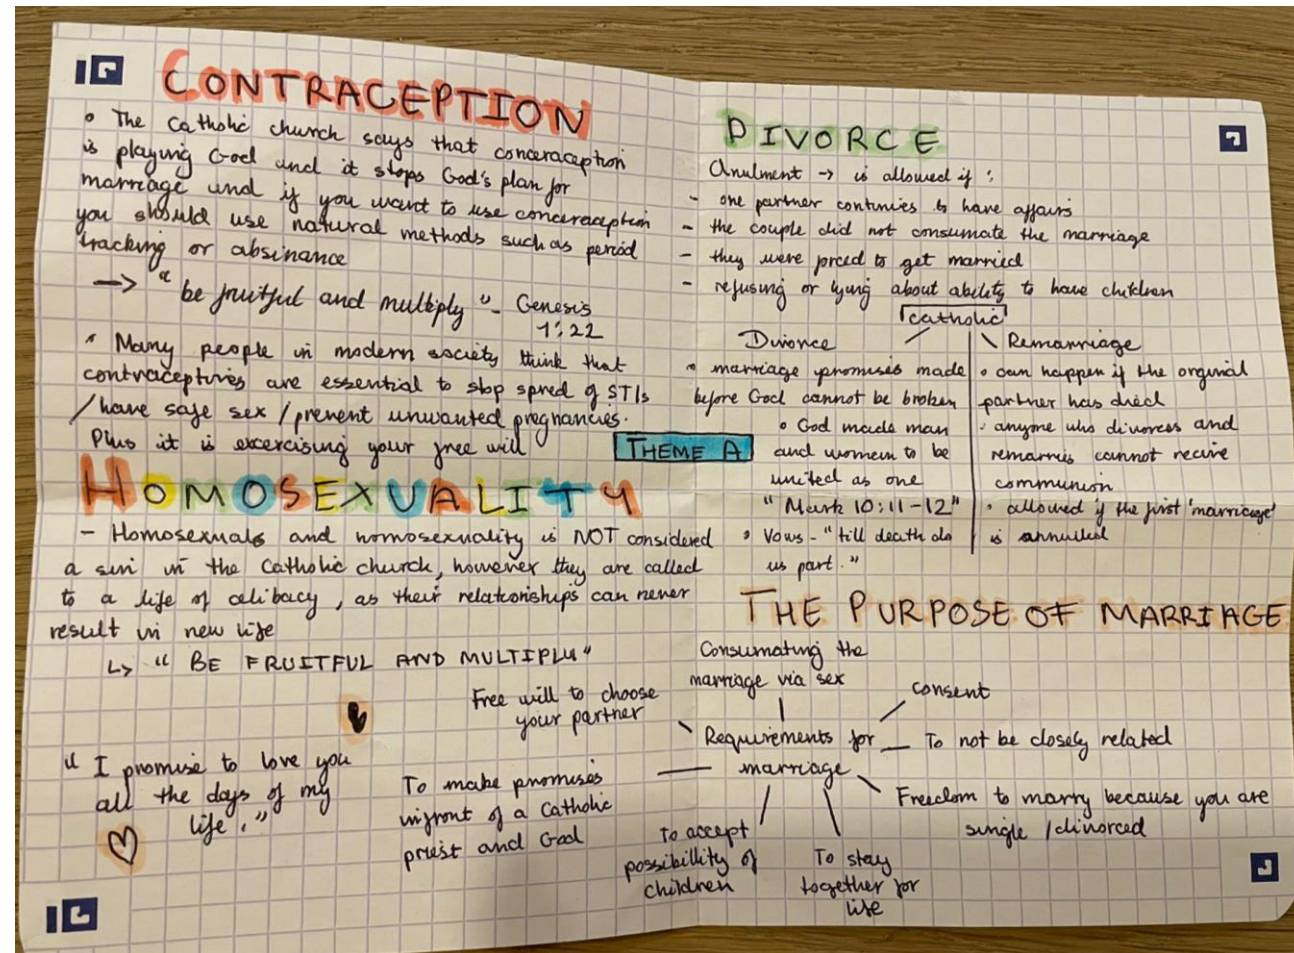 CONTRACEPTION
• The Catholic church says that conceraception
is playing God and it stops God's plan for
marriage and if you want to use conceraception
you should use natural methods such as period
tracking or absinance
→ "be fruitful and multiply" - Genesis
1:22
• Many people in modern society think that
contraceptives are essential to stop spred of STIs
/have safe sex/prevent unwanted pregnancies.
Plus it is excercising your free will
THEME A
HOMOSEXUALITY
- Homosexuals and homosexuality is NOT considered
a sin in the Catholic church, however they are called
to a life of celibacy, as their relationships can never
result in new life
↳ "BE FRUITFUL AND MULTIPLY"
"I promise to love you
all the days of my
life."
DIVORCE
Anulment → is allowed if:
- one partner continues to have affairs
- the couple did not consumate the marriage
- they were forced to get married
- refusing or lying about ability to have children
Catholic
Divorce
• marriage promises made
before God cannot be broken
• God made man
and women to be
united as one
"Mark 10:11-12"
• Vows - "till death do
us part."
Remarriage
• can happen if the orginal
partner has died
• anyone who divorces and
remarries cannot recive
communion
• allowed if the first 'marriage'
is annulled
THE PURPOSE OF MARRIAGE
Consumating the
marriage via sex
consent
Free will to choose
your partner
Requirements for
marriage
To not be closely related
To make promises
infront of a Catholic
priest and God
Freedom to marry because you are
single /divorced
To accept
possibillity of
children
To stay
together for
life